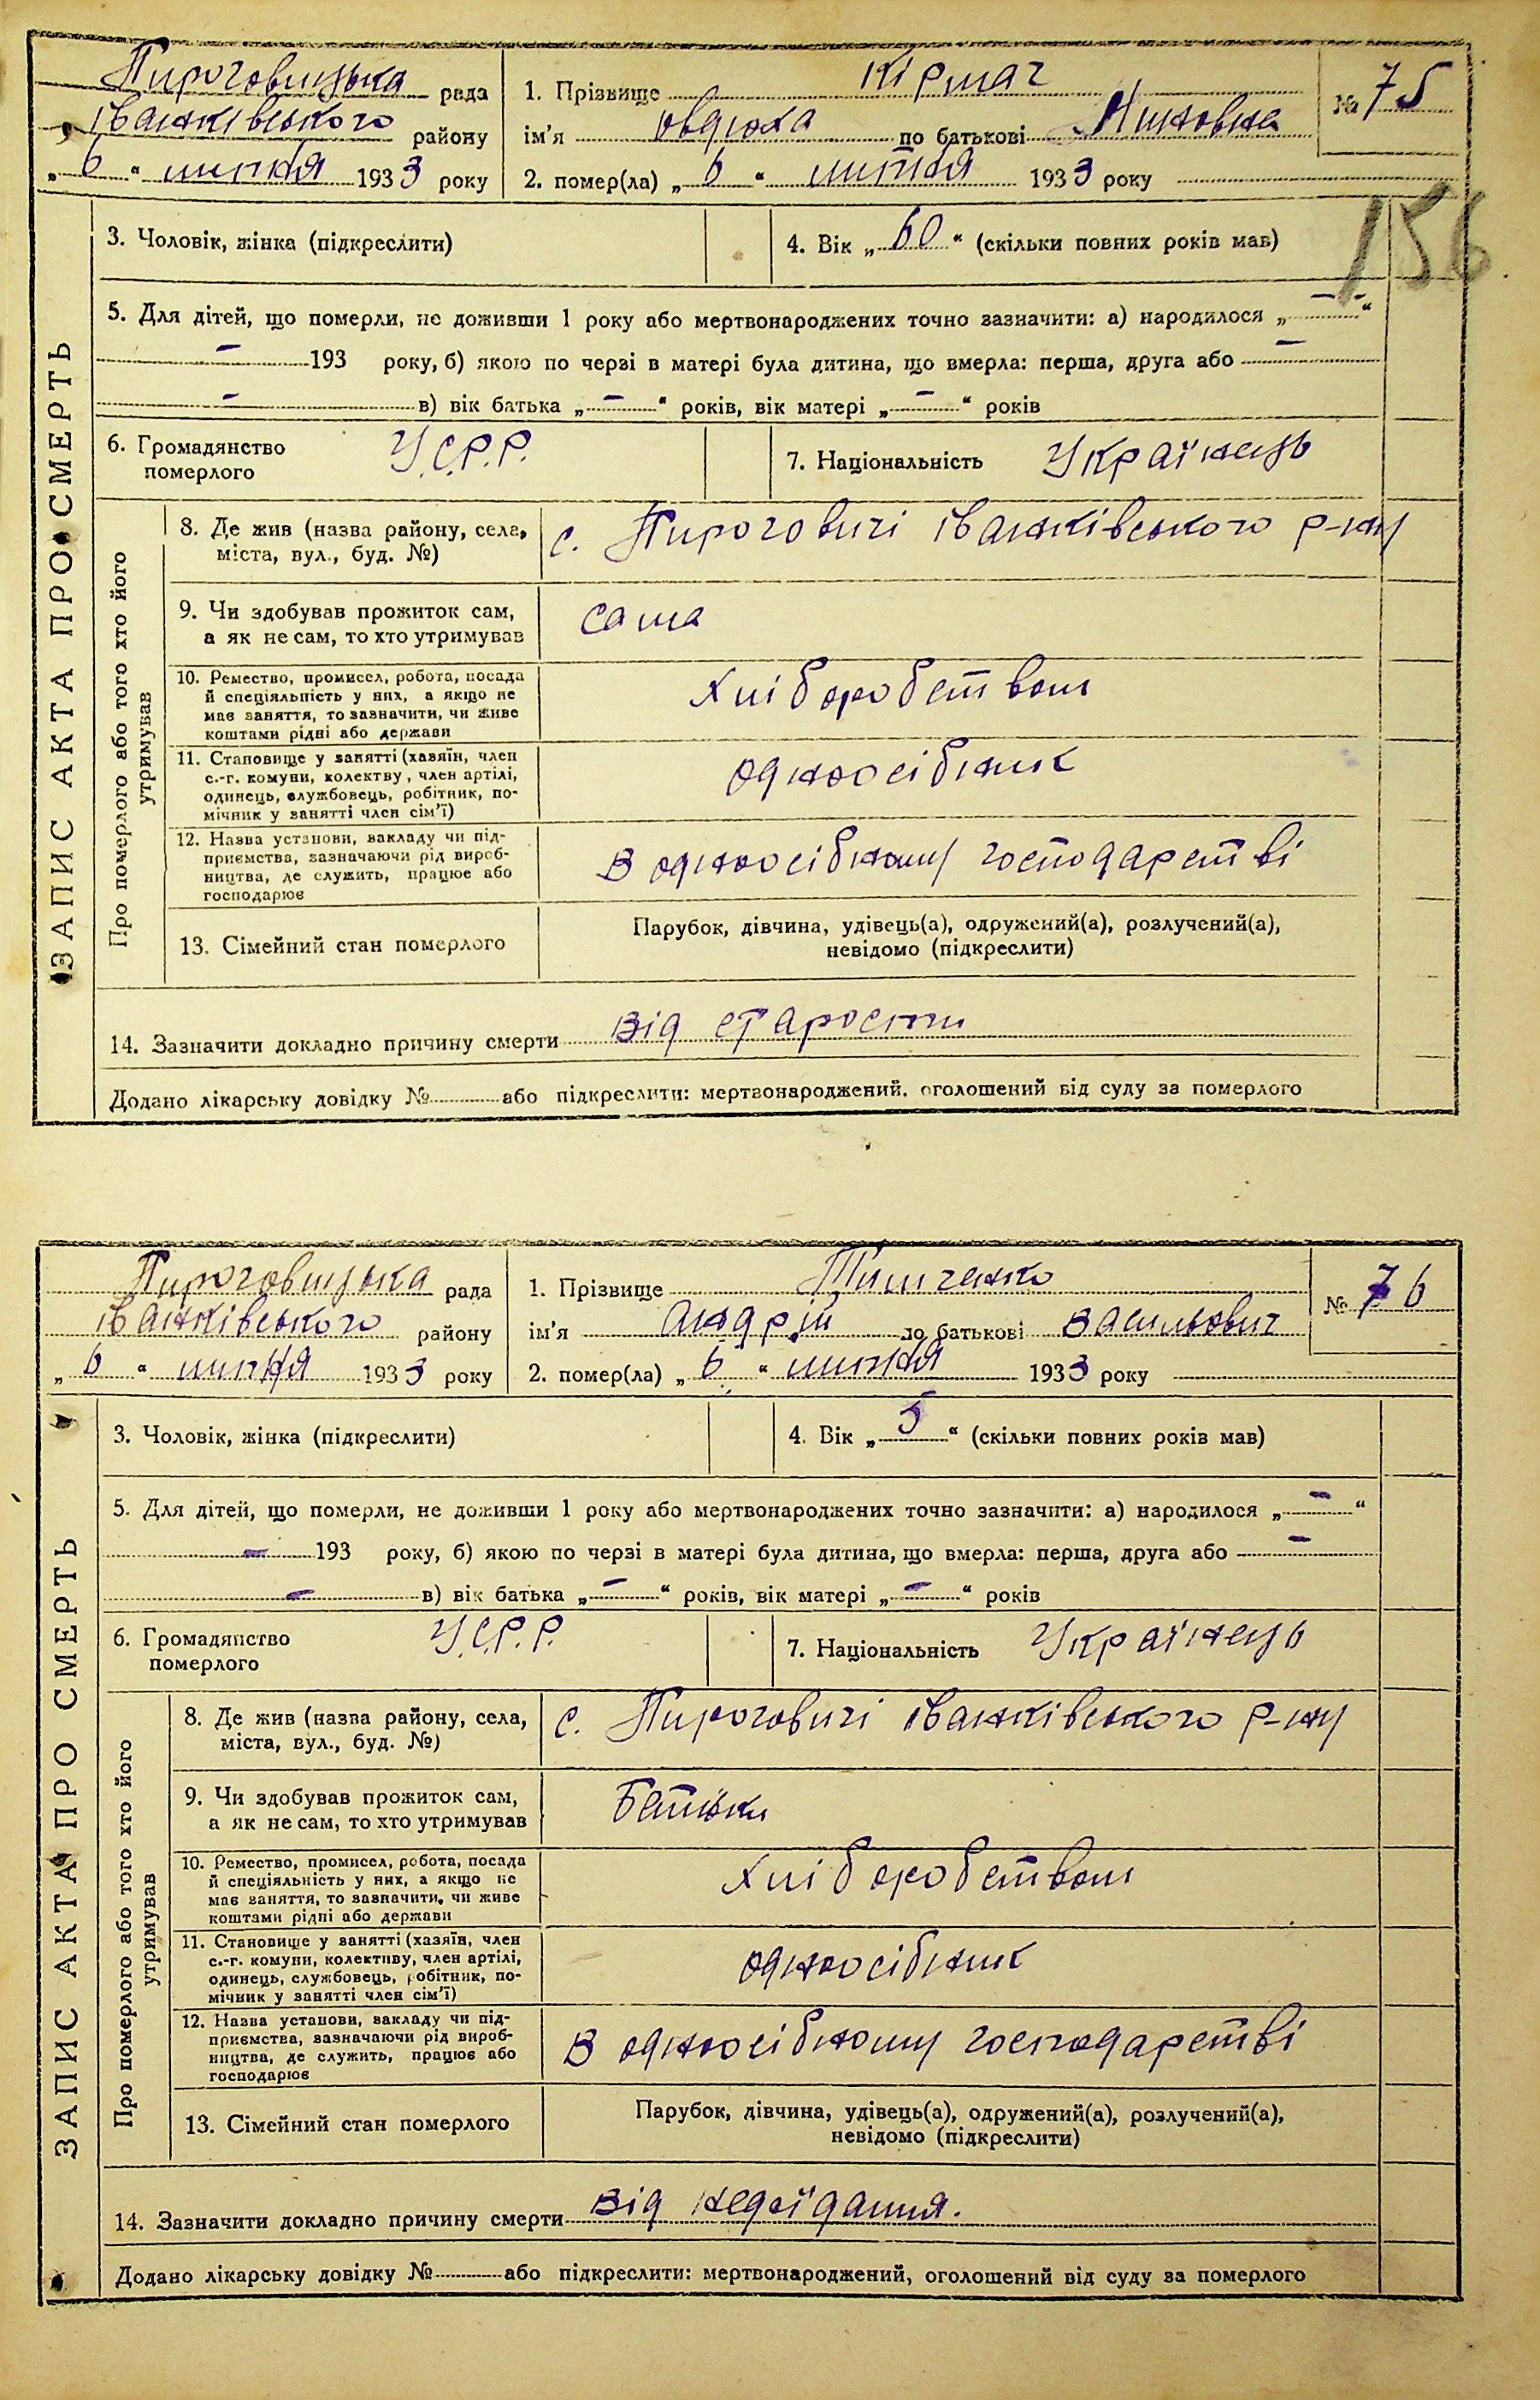 Пироговицька рада
Іванківського району
„ 6 “ липня 1933 року
1. Прізвище Кірмач
ім'я Овдюха по батькові
2. помер(ла) „ 6 “ липня 1933 року
№ 75
156
ЗАПИС АКТА ПРО СМЕРТЬ
3. Чоловік, жінка (підкреслити)
4. Вік „ 60 “ (скільки повних років мав)
5. Для дітей, що померли, не доживши 1 року або мертвонароджених точно зазначити: а) народилося „ — “
— 193 року, б) якою по черзі в матері була дитина, що вмерла: перша, друга або —
— в) вік батька „ — “ років, вік матері „ — “ років
6. Громадянство
померлого
У.С.Р.Р.
7. Національність Українець
Про померлого або того хто його
утримував
8. Де жив (назва району, села,
міста, вул., буд. №)
с. Пироговичі Іванківського р-ну
9. Чи здобував прожиток сам,
а як не сам, то хто утримував
сама
10. Ремество, промисел, робота, посада
й спеціяльність у них, а якщо не
має заняття, то зазначити, чи живе
коштами рідні або держави
хліборобством
11. Становище у занятті (хазяїн, член
с.-г. комуни, колектву, член артілі,
одинець, службовець, робітник, по-
мічник у занятті член сім'ї)
односібник
12. Назва установи, закладу чи під-
приємства, зазначаючи рід вироб-
ництва, де служить, працює або
господарює
В односібному господарстві
13. Сімейний стан померлого
Парубок, дівчина, удівець(а), одружений(а), розлучений(а),
невідомо (підкреслити)
14. Зазначити докладно причину смерти від старости
Додано лікарську довідку № або підкреслити: мертвонароджений, оголошений від суду за померлого
Пироговицька рада
Іванківського району
„ 6 “ липня 1933 року
1. Прізвище Тимченко
ім'я Андрій по батькові Васильович
2. помер(ла) „ 6 “ липня 1933 року
№ 76
ЗАПИС АКТА ПРО СМЕРТЬ
3. Чоловік, жінка (підкреслити)
4. Вік „ 5 “ (скільки повних років мав)
5. Для дітей, що померли, не доживши 1 року або мертвонароджених точно зазначити: а) народилося „ — “
— 193 року, б) якою по черзі в матері була дитина, що вмерла: перша, друга або —
— в) вік батька „ — “ років, вік матері „ — “ років
6. Громадянство
померлого
У.С.Р.Р.
7. Національність Українець
Про померлого або того хто його
утримував
8. Де жив (назва району, села,
міста, вул., буд. №)
с. Пироговичі Іванківського р-ну
9. Чи здобував прожиток сам,
а як не сам, то хто утримував
Батьки
10. Ремество, промисел, робота, посада
й спеціяльність у них, а якщо не
має заняття, то зазначити, чи живе
коштами рідні або держави
хліборобством
11. Становище у занятті (хазяїн, член
с.-г. комуни, колективу, член артілі,
одинець, службовець, робітник, по-
мічник у занятті член сім'ї)
односібник
12. Назва установи, закладу чи під-
приємства, зазначаючи рід вироб-
ництва, де служить, працює або
господарює
В односібному господарстві
13. Сімейний стан померлого
Парубок, дівчина, удівець(а), одружений(а), розлучений(а),
невідомо (підкреслити)
14. Зазначити докладно причину смерти від недоїдання.
Додано лікарську довідку № або підкреслити: мертвонароджений, оголошений від суду за померлого